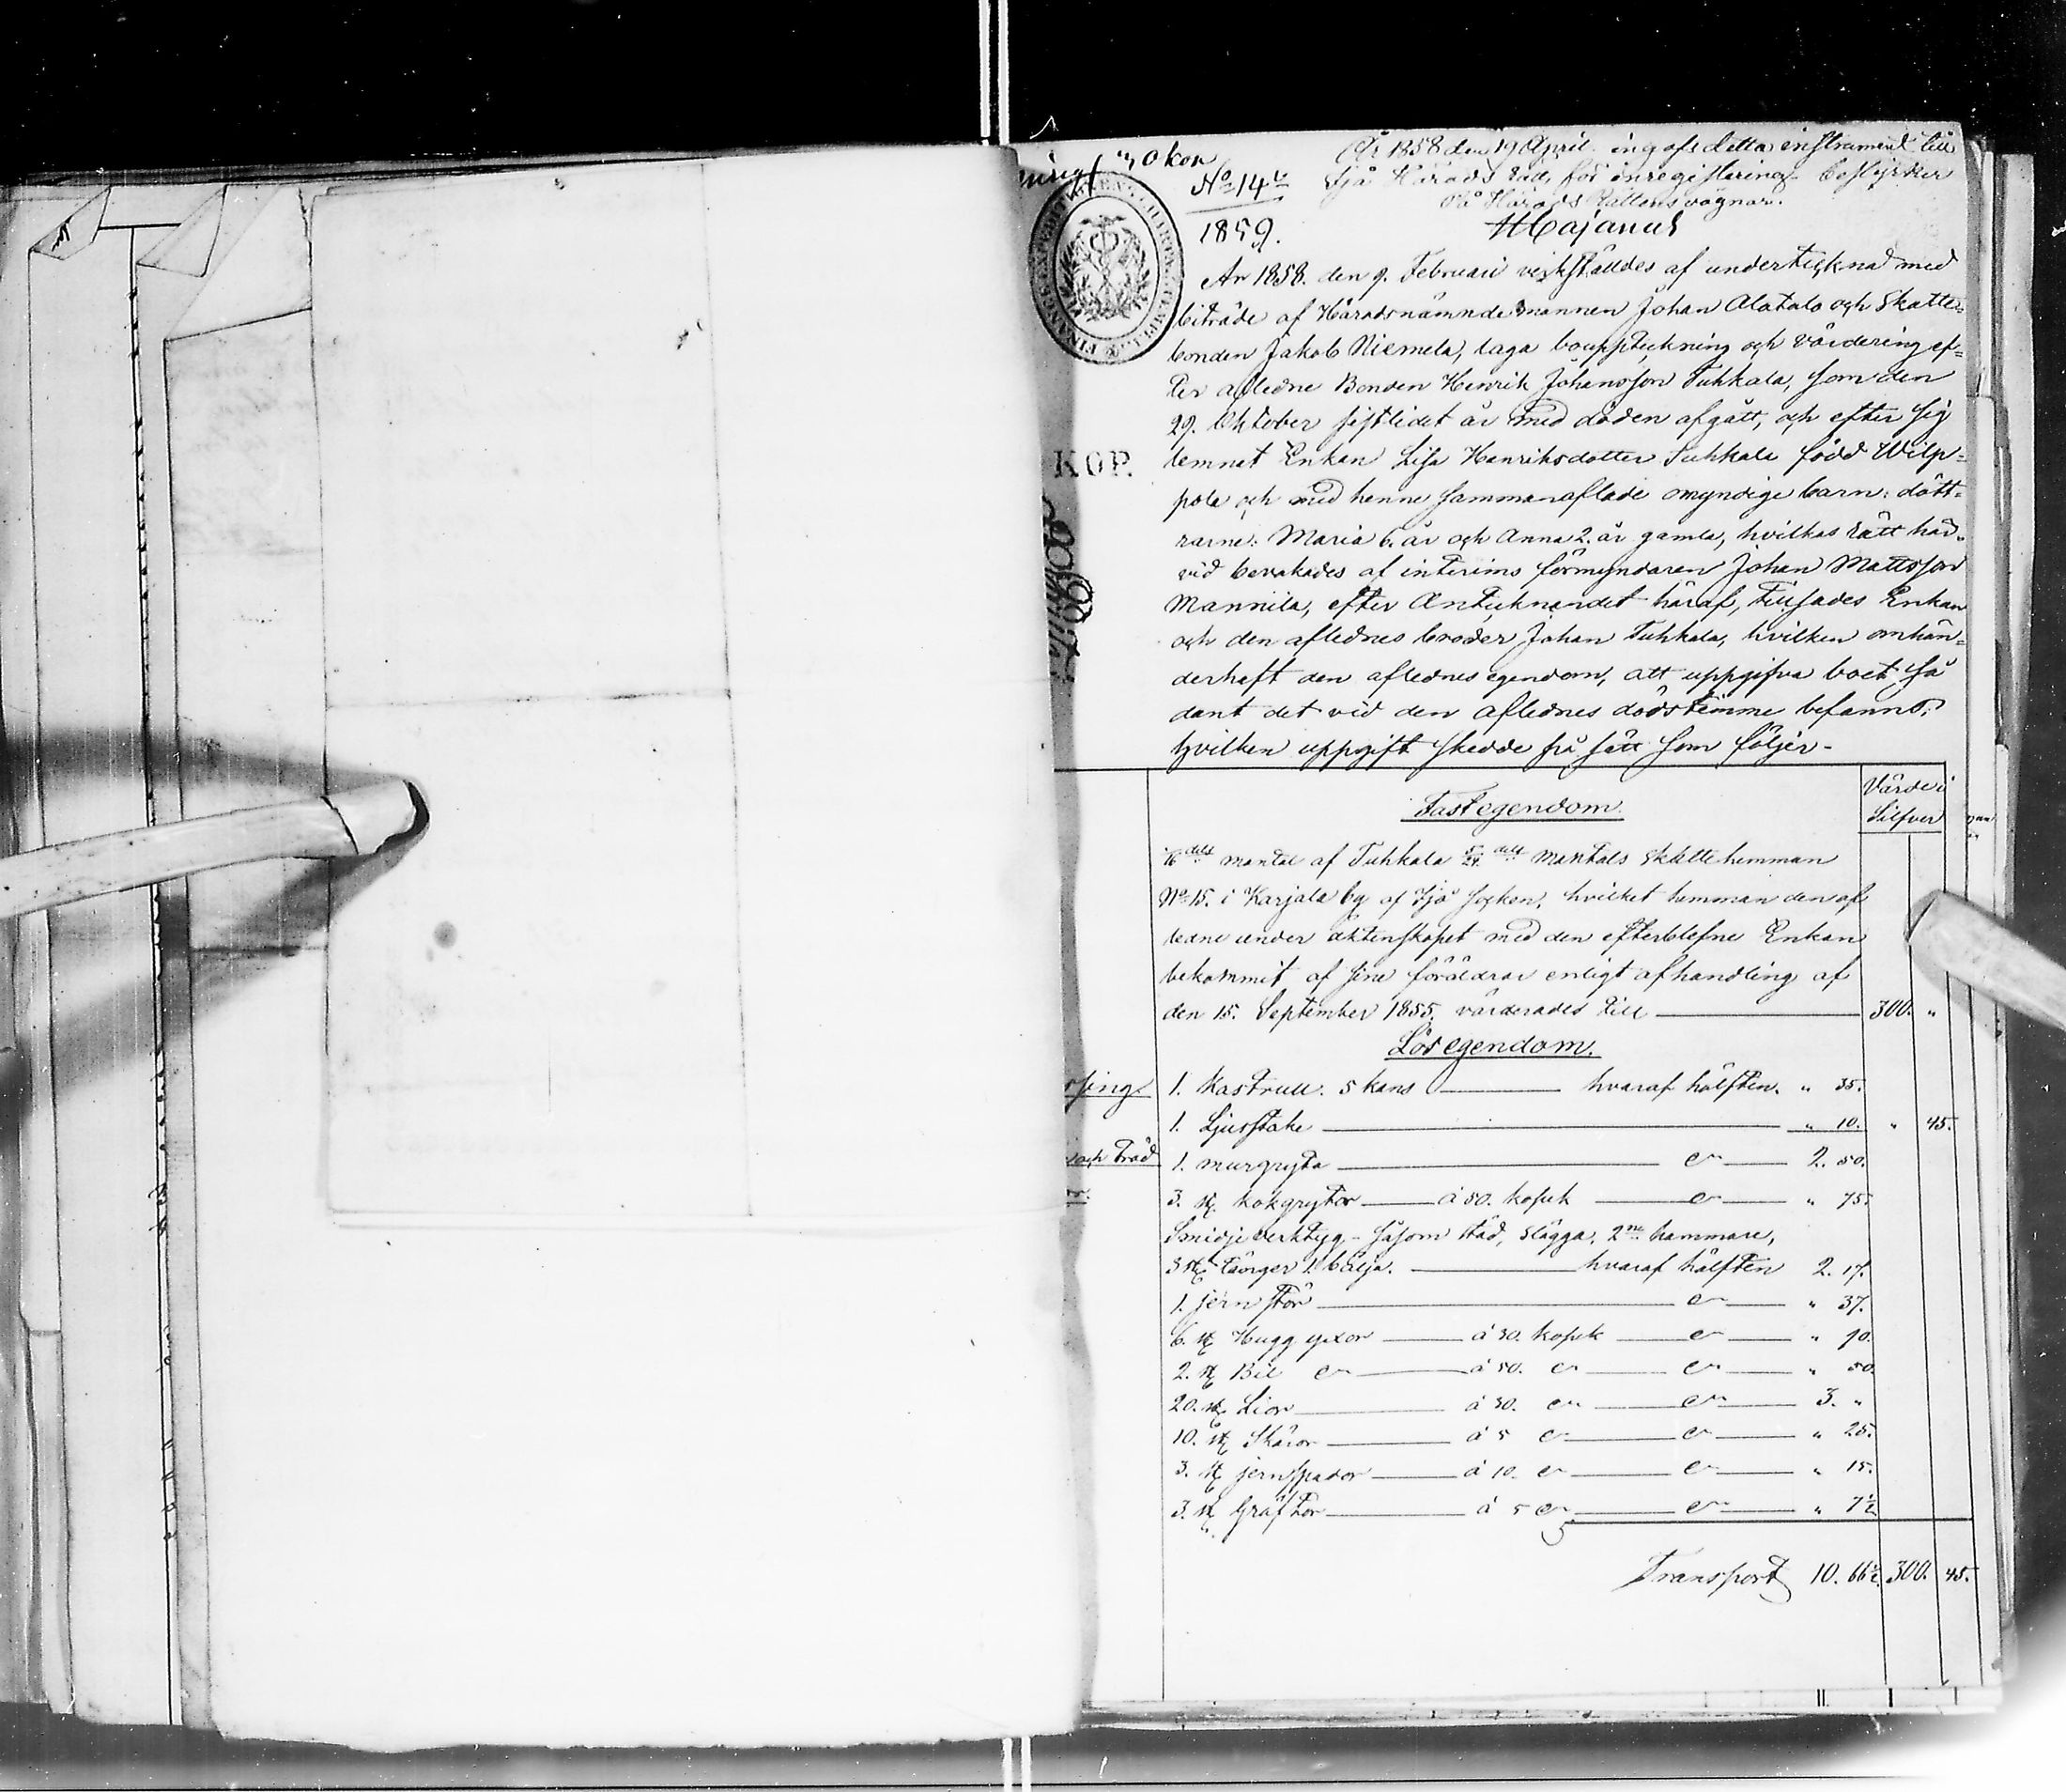 År 1858 den 19 April ingafs detta instrument till
Ijå Härads Rätt, för inregistrering. bestyrker
På Härads Rättens vägnar.
HCajanus
No 14
1859.
KOP.
År 1858. den 9. Februari verkställdes af undertecknad med
biträde af Häradsnämndemannen Johan Alatalo och Skatte-
bonden Jakob Niemelä, laga bouppteckning och värdering ef-
ter aflidne Bonden Henrik Johansson Tuhkala, som den
29. Oktober sistlidet år med döden afgått, och efter sig
lemnat Enkan Lisa Henriksdotter Tuhkala född Wilp-
pola och med henne sammanaflade omyndige barn: dött-
rarne: Maria 6. år och Anna 2. år gamla, hvilkas rätt här-
vid bevakades af interims förmyndaren Johan Mattsson
Mannila, efter Antecknandet häraf, tillsades Enkan
och den aflednes broder Johan Tuhkala, hvilken omhän-
derhaft den aflednes egendom, att uppgifva boet så
dant det vid den aflednes dödstimme befanns,
hvilken uppgift skedde på sätt som följer-
Värde i
Silfver
Fast egendom.
mantal af Tuhkala 5/24 dels mantals skattehemman
No 15. i Karjala by af Ijå socken, hvilket hemman den af
ledne under äktenskapet med den efterblefne Enkan
bekommit af sine föräldrar enligt afhandling af
den 15. September 1855. värderades till 300. "
Lösegendom.
1. Kastrull. 5 kans hvaraf hälften. " 35.
1. Ljusstake " 10. " 45.
och Tråd 1. murgryta 2. 50.
3. st. kokgrytor á 50. kopek " 75.
Smidjeverktyg - såsom städ, slägga, 2ne hammare,
3 st tänger 1. bälja. hvaraf hälften 2. 17.
1. jern stör " 37.
6. st Hugg yxor á 30. kopek " 90.
2. st Bil á 50. " 50.
20. st Lior á 30. 3. "
10. st Skäror á 5 " 25.
3. st jernspador á 10. " 15.
3. st Gräftor á 5 " 7½
Transport 10. 66½ 300. 45.